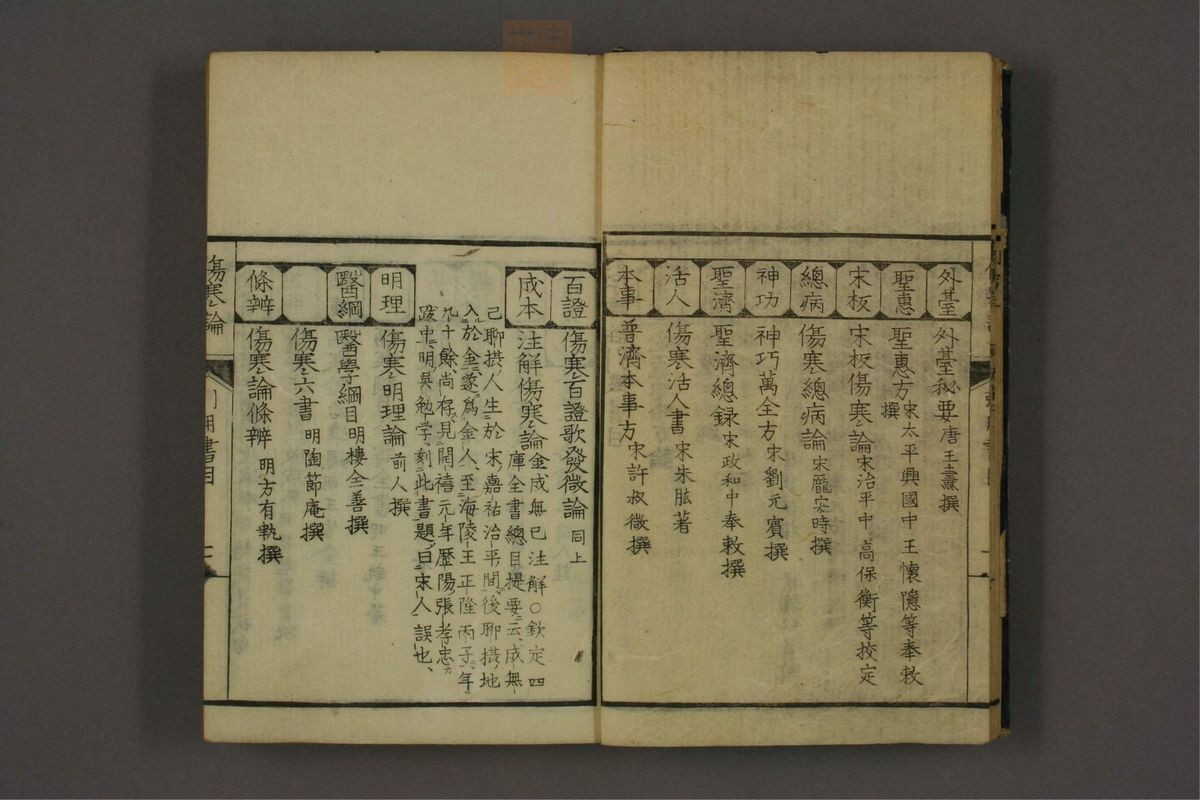 外臺 外臺秘要 唐王燾撰
聖惠 聖惠方 宋太平興國中王懷隱等奉敕撰
宋板 宋板傷寒論 宋治平中高保衡等挍定
總病 傷寒總病論 宋龐安時撰
神功 神巧萬全方 宋劉元賓撰
聖濟 聖濟總録 宋政和中奉敕撰
活人 傷寒活人書 宋朱肱著
本事 普濟本事方 宋許叔微撰
百證 傷寒百證歌發微論 同上
成本 注解傷寒論 金成無已注解○欽定四
庫全書總目提要云、成無
己聊摂人、生於宋嘉祐治平間、後聊摂地
入於金、遂爲金人、至海陵王正隆丙子、年
九十餘、尚存、見開禧元年歷陽張孝忠
跋中、明吳勉学刻此書、題曰宋人誤也、
明理 傷寒明理論 前人撰
醫綱 醫學綱目 明樓全善撰
傷寒六書 明陶節庵撰
條辨 傷寒論條辨 明方有執撰
傷寒論